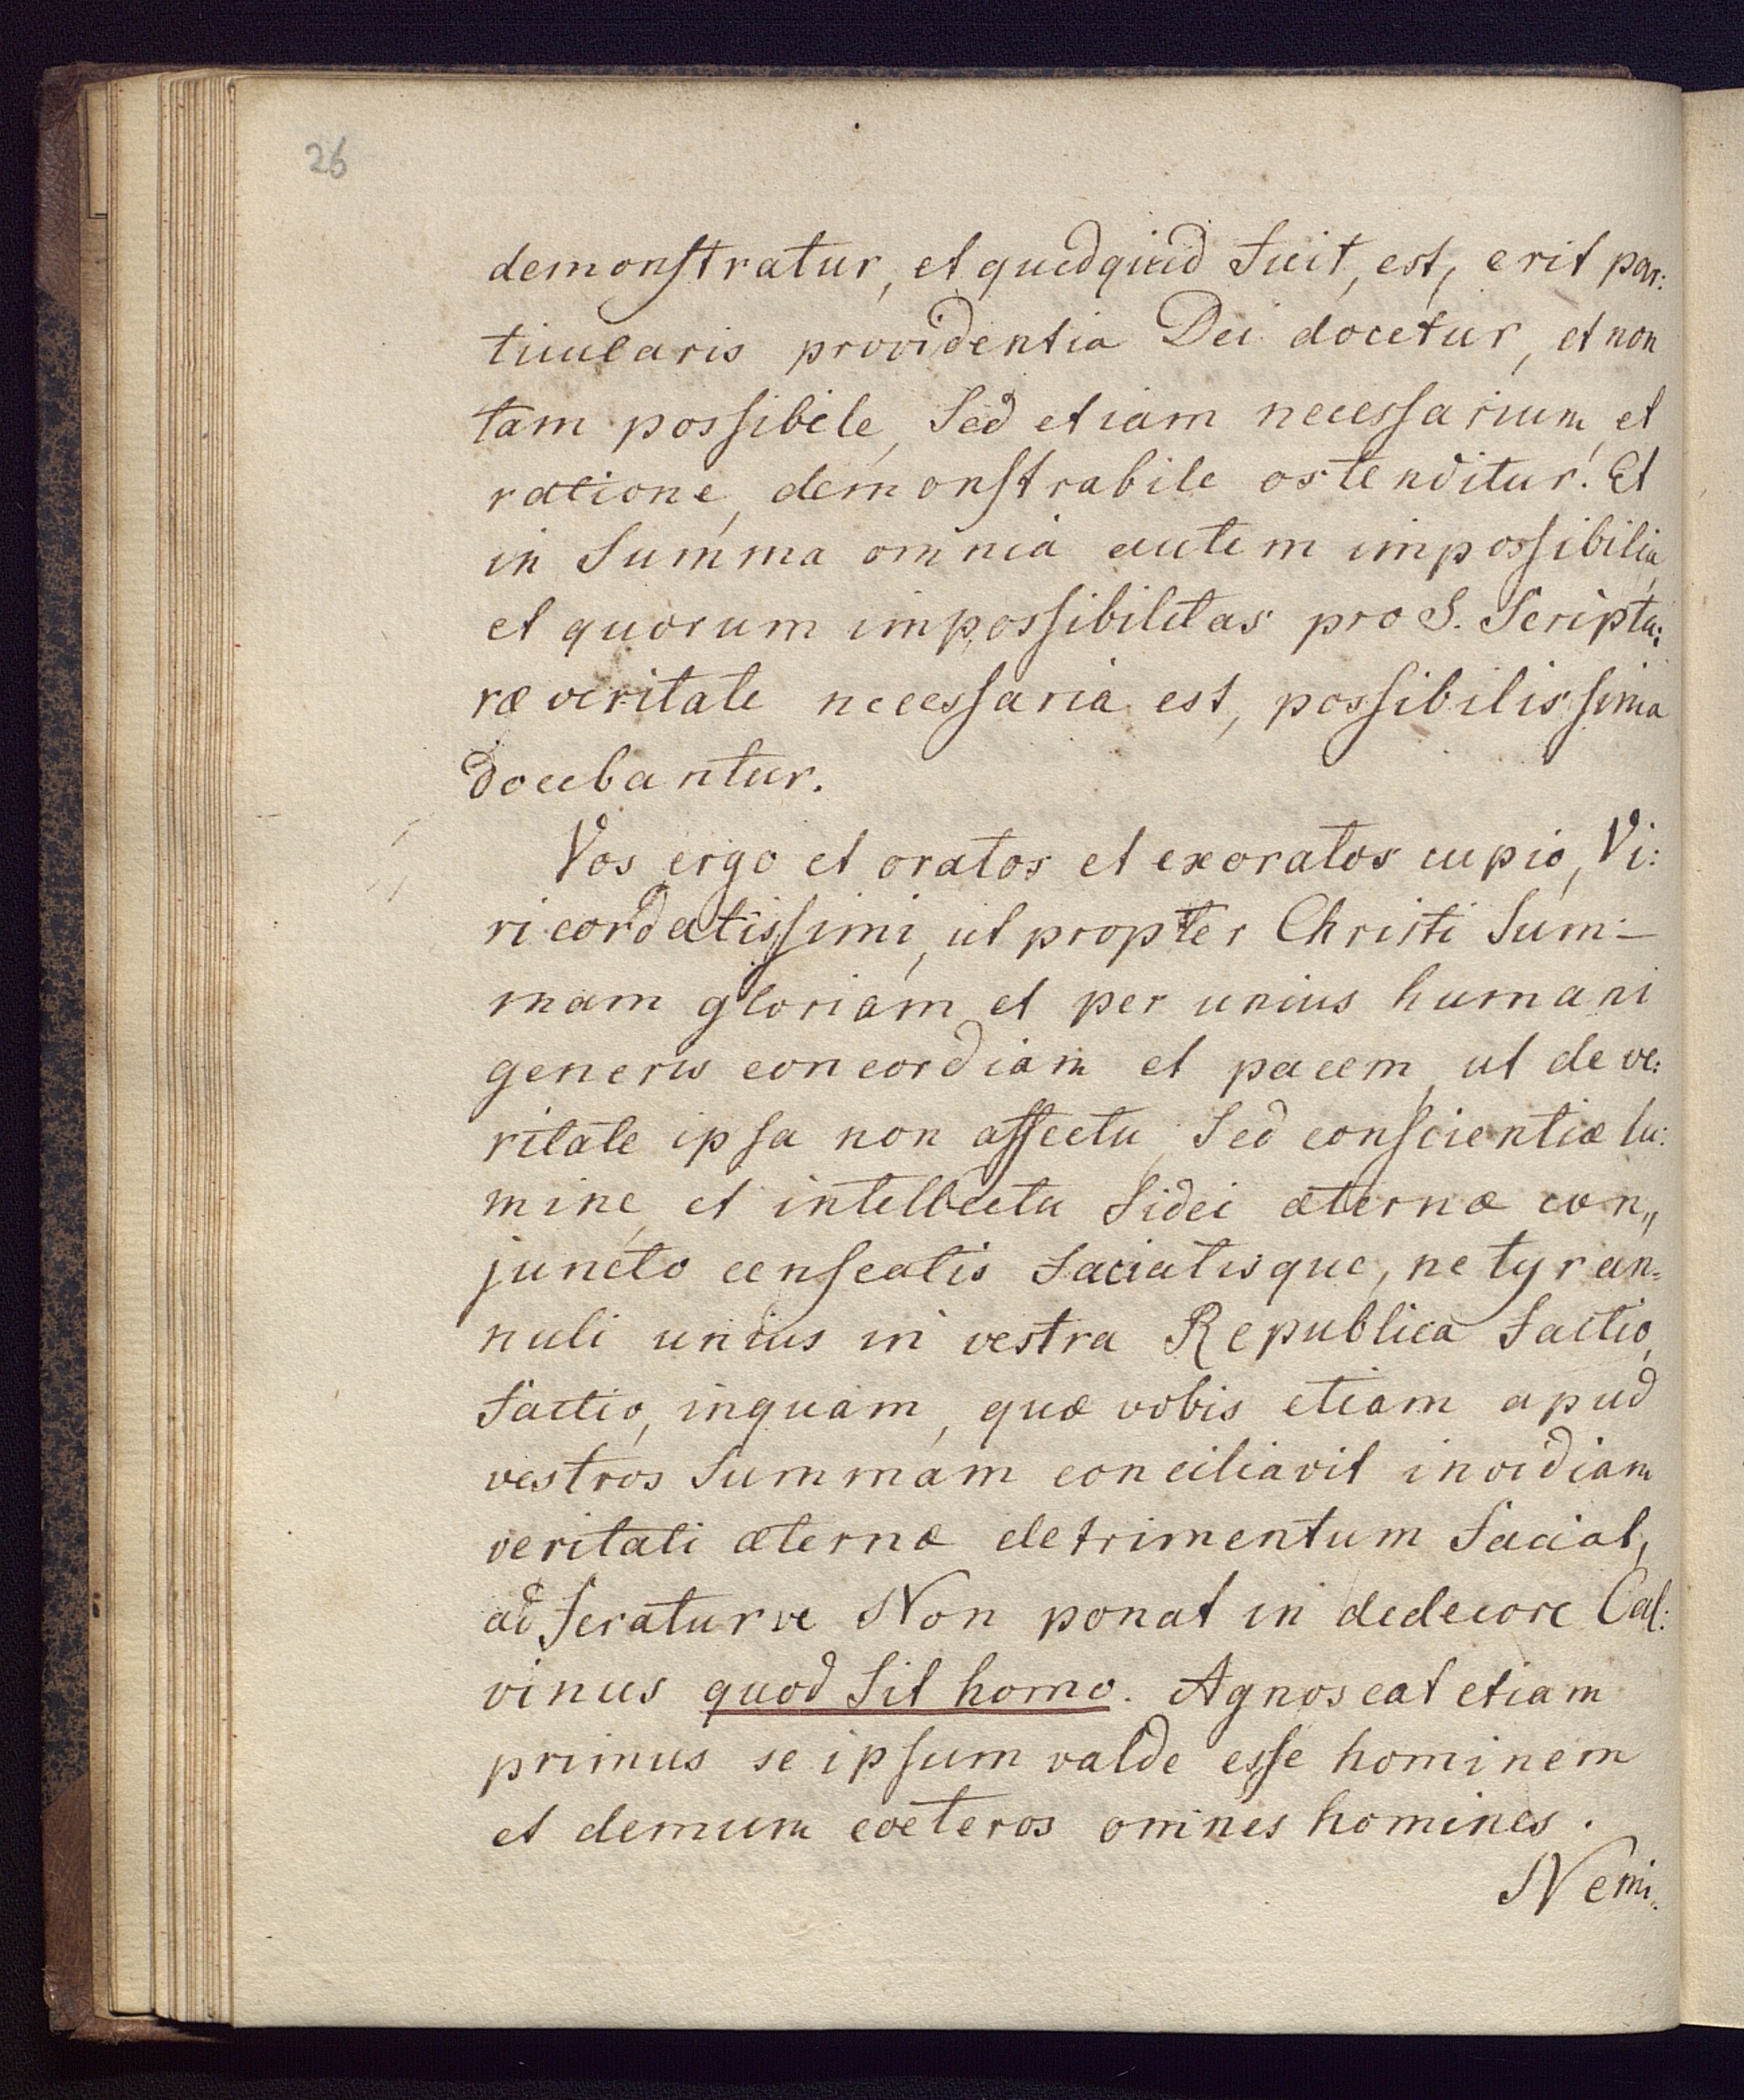 26
demonstratur, et quidquid fuit, est, erit par:
ticularis providentia Dei docetur, et non
tam possibile, sed etiam necessarium, et
ratione, demonstrabile ostenditur. Et
in summa omnia autem impossibilia,
et quorum impossibilitas pro S. Scriptu:
ræ veritate necessaria est, possibilissima
docebantur.
Vos ergo et oratos et exoratos cupio, Vi:
ri cordatissimi, ut propter Christi sum-
mam gloriam et per unius humani
generis concordiam et pacem, ut de ve:
ritate ipsa non affectu, sed conscientiæ lu:
mine, et intellectu fidei æternæ con„
juncto censeatis faciatisque, ne tyran=
nuli unius in vestra Republica factio,
factio, inquam, quæ vobis etiam apud
vestros summam conciliavit invidiam
veritati æternæ detrimentum faciat,
adferaturve Non ponat in dedecore Cal:
vinus quod sit homo. Agnoscat etiam
primus se ipsum valde esse hominem
et demum cœteros omnes homines.
Nemi„